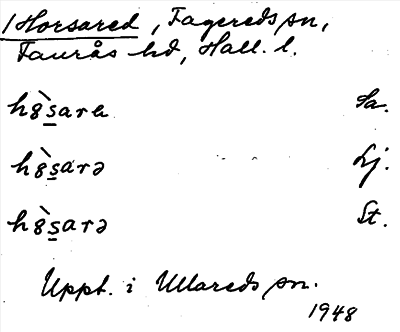 1 Horsared, Fagereds sn,
Faurås hd, Hall. l.
hȣ̀s̲ara Sa.
hȣ̀s̲arə Lj.
hȣ̀s̲arə St.
Uppt. i Ullareds sn.
1948